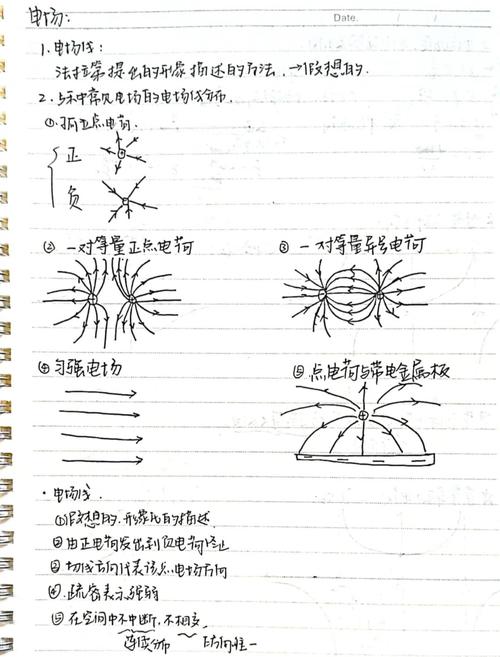 电场:
Date. / /
1.电场线:
法拉第提出的形象描述的方法.→假想的.
2.5种常见电场的电场线分布.
①孤立点电荷.
正
负
②一对等量正点电荷
③一对等量异号电荷
④匀强电场
⑤点电荷与带电金属板
·电场线.
①假想的.形象化的描述.
②由正电荷发出到负电荷终止
③切线方向代表该点电场方向
④疏密表示强弱
⑤在空间中不中断.不相交.
连续分布 方向唯一